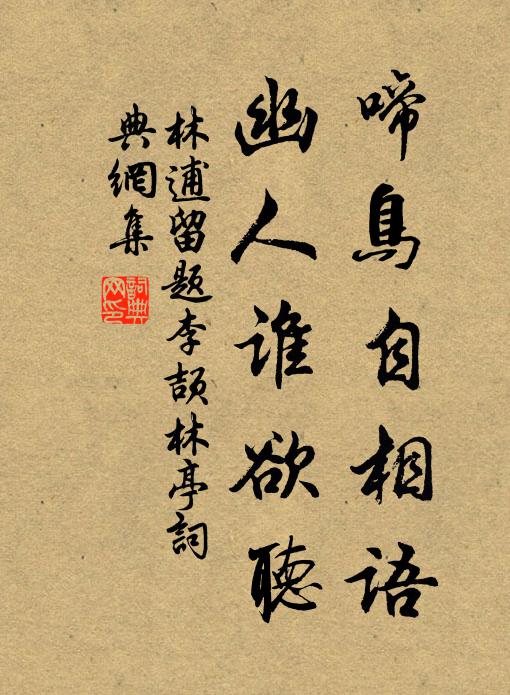 啼鳥自相語
幽人誰欲聽
林逋留題李頡林亭詞
典網集
詞典
网印